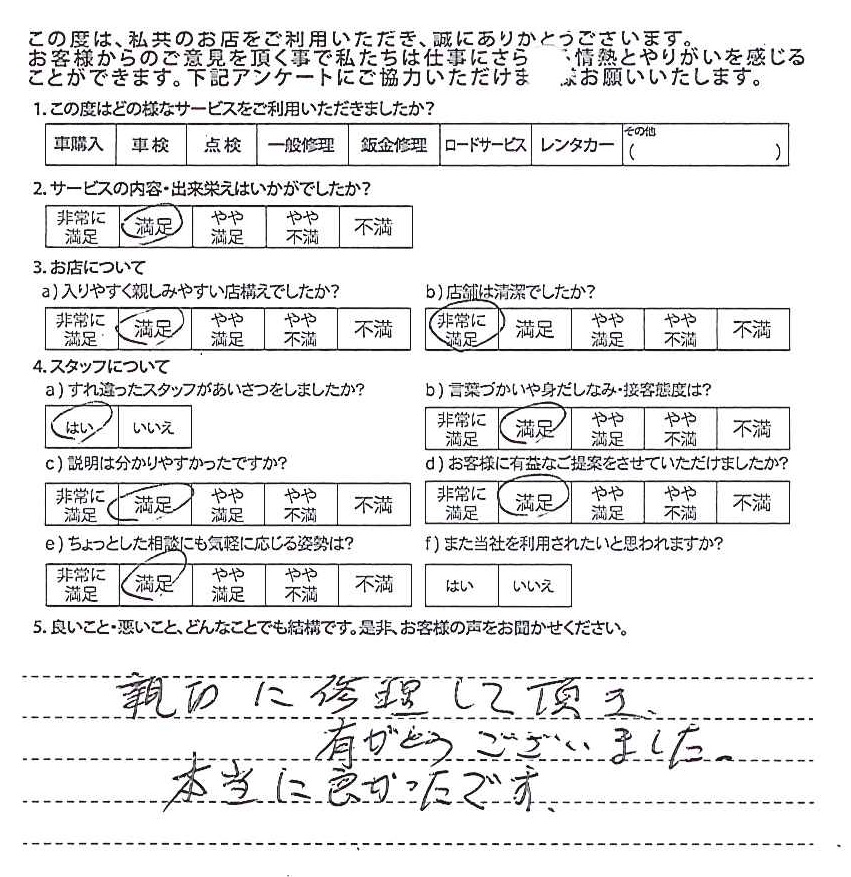 この度は、私共のお店をご利用いただき、誠にありがとうございます。
お客様からのご意見を頂く事で私たちは仕事にさら 情熱とやりがいを感じる
ことができます。下記アンケートにご協力いただけま 様お願いいたします。
1. この度はどの様なサービスをご利用いただきましたか?
車購入 車検 点検 一般修理 鈑金修理 ロードサービス レンタカー その他 ( )
2. サービスの内容・出来栄えはいかがでしたか?
非常に満足 満足 やや満足 やや不満 不満
3. お店について
a) 入りやすく親しみやすい店構えでしたか? b) 店舗は清潔でしたか?
非常に満足 満足 やや満足 やや不満 不満 非常に満足 満足 やや満足 やや不満 不満
4. スタッフについて
a) すれ違ったスタッフがあいさつをしましたか? b) 言葉づかいや身だしなみ・接客態度は?
はい いいえ 非常に満足 満足 やや満足 やや不満 不満
c) 説明は分かりやすかったですか? d) お客様に有益なご提案をさせていただけましたか?
非常に満足 満足 やや満足 やや不満 不満 非常に満足 満足 やや満足 やや不満 不満
e) ちょっとした相談にも気軽に応じる姿勢は? f) また当社を利用されたいと思われますか?
非常に満足 満足 やや満足 やや不満 不満 はい いいえ
5. 良いこと・悪いこと、どんなことでも結構です。是非、お客様の声をお聞かせください。
親切に修理して頂き、
有がとうございました。
本当に良かったです。